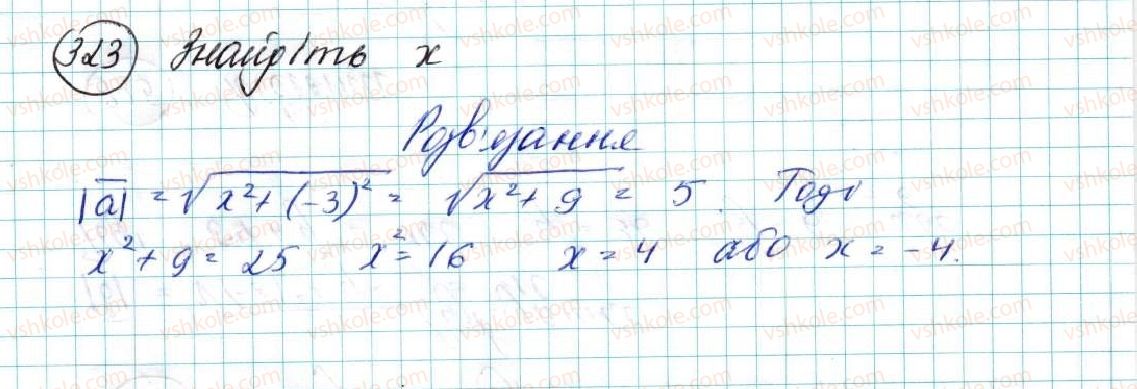 323 Знайдіть x
Розв'язання
|a̅| = √(x² + (-3)²) = √(x² + 9) = 5. Тоді
x² + 9 = 25 x² = 16 x = 4 або x = -4.